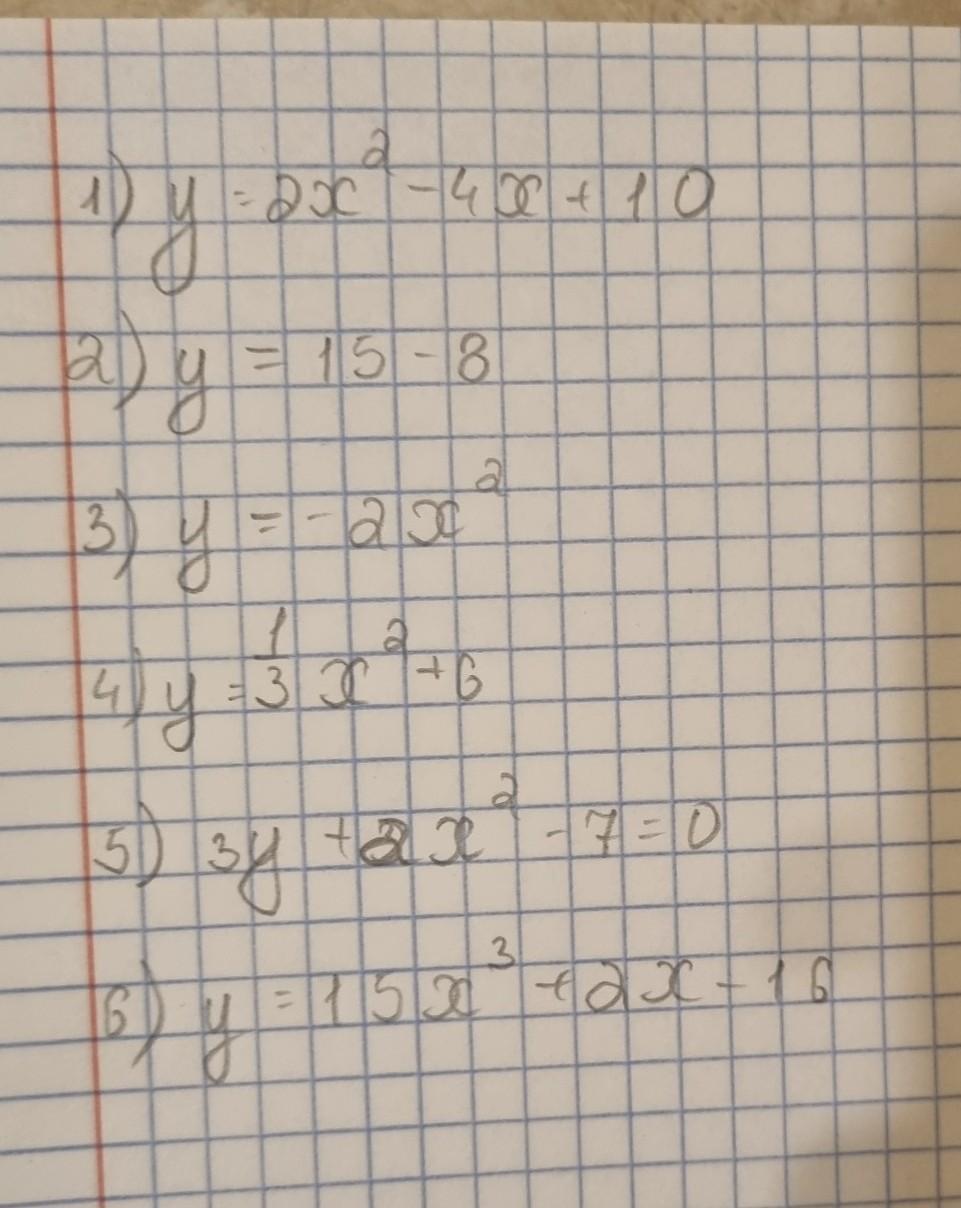 1) y = 2x² - 4x + 10
2) y = 15 - 8
3) y = - 2x²
4) y = 1/3 x² + 6
5) 3y + 2x² - 7 = 0
6) y = 15x³ + 2x - 16